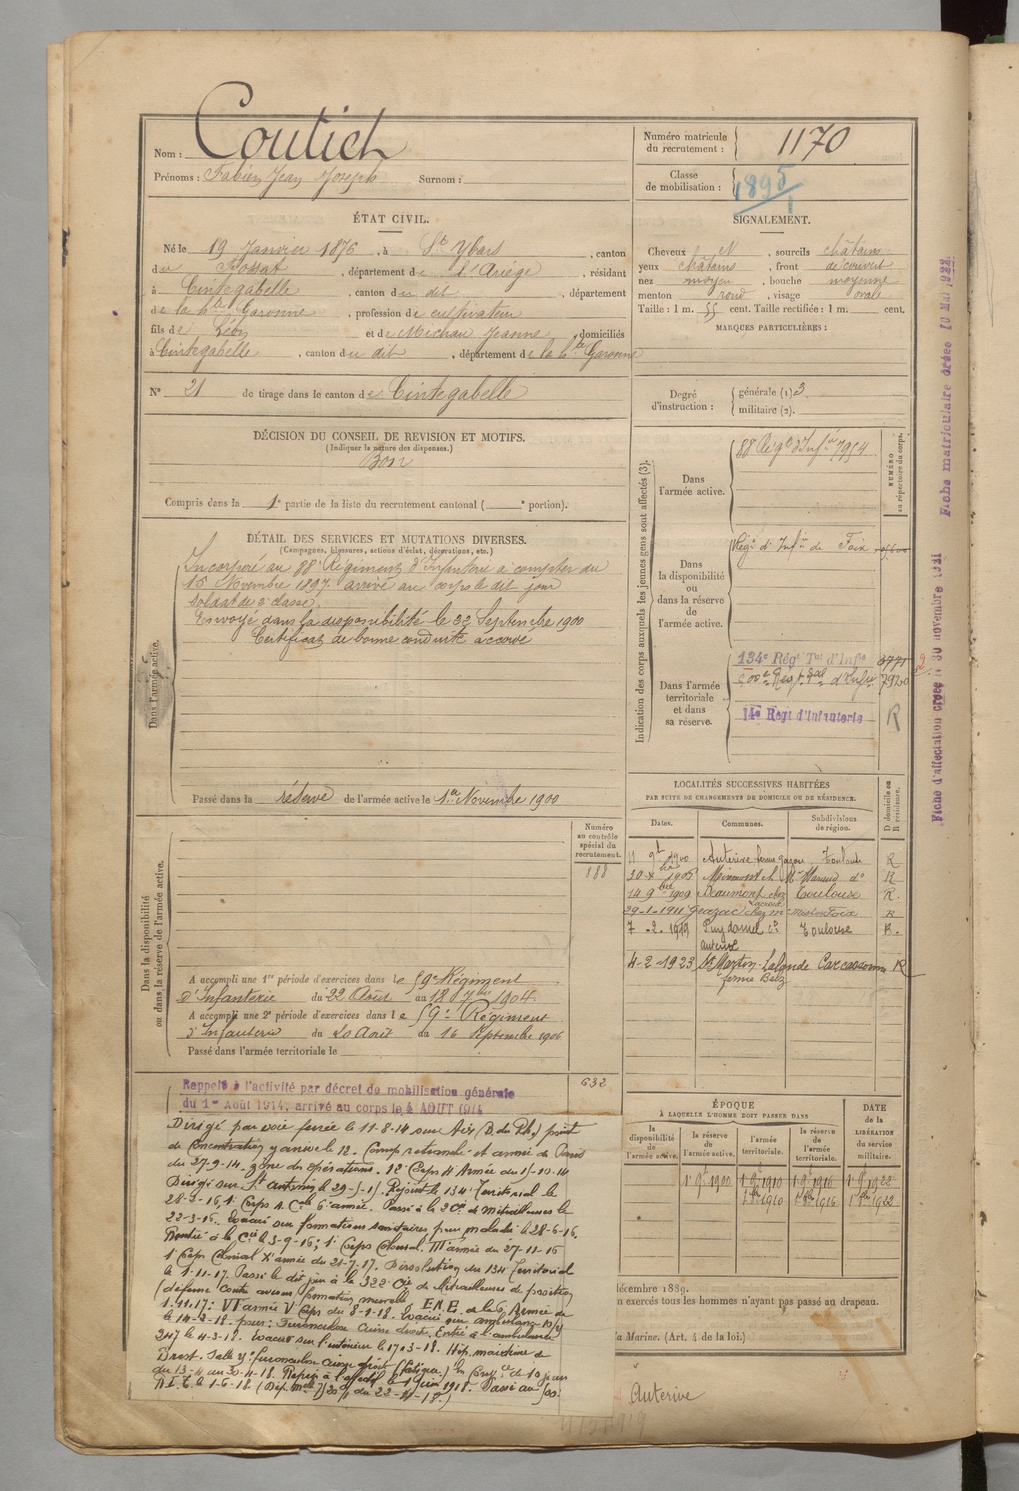 Nom : Coutich
Prénoms : Fabien Jean Joseph Surnom :
Numéro matricule du recrutement : 1170
Classe de mobilisation : 1895/1
ÉTAT CIVIL.
Né le 19 Janvier 1876, à St Ybars, canton
du Fossat, département de l'Ariège, résidant
à Cintegabelle, canton du dit, département
de la hte Garonne, profession de cultivateur
fils de et de Michau Jeanne, domiciliés
à Cintegabelle, canton du dit, département de la hte Garonne
N° 21 de tirage dans le canton de Cintegabelle
SIGNALEMENT.
Cheveux N, sourcils châtains
yeux châtains, front découvert
nez moyen, bouche moyenne
menton rond, visage ovale
Taille : 1 m. 55 cent. Taille rectifiée : 1 m. cent.
MARQUES PARTICULIÈRES :
Degré d'instruction : générale (1) 3
militaire (2).
DÉCISION DU CONSEIL DE REVISION ET MOTIFS.
(Indiquer la nature des dispenses.)
Bon
Compris dans la 1e partie de la liste du recrutement cantonal ( e portion).
DÉTAIL DES SERVICES ET MUTATIONS DIVERSES.
(Campagnes, blessures, actions d'éclat, décorations, etc.)
Dans l'armée active.
Incorporé au 88e Régiment d'Infanterie à compter du
15 Novembre 1897 arrivé au corps le dit jour
soldat de 2e classe.
Envoyé dans la disponibilité le 22 Septembre 1900
Certificat de bonne conduite accordé
Passé dans la réserve de l'armée active le 1er Novembre 1900
Indication des corps auxquels les jeunes gens sont affectés (3).
NUMÉRO au répertoire du corps.
Dans l'armée active.
88 Régt d'Infie 7954
Dans la disponibilité ou dans la réserve de l'armée active.
Régt d'Infie de Foix
Dans l'armée territoriale et dans sa réserve.
134e Régt Tal d'Infie 3771
Régt d'Infie 7920
14e Régt d'Infanterie R
Fiche d'affectation créée le 30 novembre 1921
Fiche matriculaire créée 10 Mai 1922
LOCALITÉS SUCCESSIVES HABITÉES
PAR SUITE DE CHANGEMENTS DE DOMICILE OU DE RÉSIDENCE.
Dates. Communes. Subdivisions de région. D domicile ou R résidence.
11 9bre 1900 Auterive ferme Toulouse R
30 Xbre 1905 Miremont do R
14 9bre 1909 Beaumont chez Lacroix Toulouse R.
29-1-1911 Foix R
7-2-1919 Puydaniel cn auterive Toulouse R.
4-2-1923 St Martin-Lalande ferme Carcassonne R
Numéro au contrôle spécial du recrutement.
188
Dans la disponibilité ou dans la réserve de l'armée active.
A accompli une 1re période d'exercices dans le 59e Régiment
d'Infanterie du 22 Août au 18 7bre 1904
A accompli une 2e période d'exercices dans le 59e Régiment
d'Infanterie du 20 Août au 16 Septembre 1906
Passé dans l'armée territoriale le
632
Rappelé à l'activité par décret de mobilisation générale
du 1er Août 1914, arrivé au corps le 4 AOUT 1914
Dirigé par voie ferrée le 11-8-14 sur Aix (B. du Rh.) point
de concentration y arrive le 12. Camp retranché et armée de Paris
du 27-9-14. zône des opérations. 12e Corps 4e Armée du
Dirigé sur St Antonin le Rejoint le 134e Territorial le
28-2-16, 1r Corps 6e armée. Passé à la 2e Cie de mitrailleuses le
22-3-16. Evacué sur formations sanitaires pour maladie le 28-6-16.
Rentré à la Cie le 3-9-16; 1r Corps Colonial. IIIe armée du 27-11-16
1r Corps Colonial Xe armée du 21-7-17. Dissolution du 134e Territorial
le 1-11-17. Passé le dit jour à la 322e Cie de Mitrailleuses de position
(défense contre avions) formation nouvelle
1.11.17: VIe armée Ve Corps du 8-1-18. Evacué
le 14-2-18 pour: Furonculose cuisse droite. Entré à l'ambulance
247 le 4-3-18. Evacué sur l'intérieur le 17-3-18. Hôp. maritime de
Brest. Salle 7: furonculose cuisse droite (fatigue.)
du 13-4 au 30-4-18.
R.I.T. le 1-6-18 du 22-4-18.)
ÉPOQUE
À LAQUELLE L'HOMME DOIT PASSER DANS
la disponibilité de l'armée active. la réserve de l'armée active. l'armée territoriale. la réserve de l'armée territoriale. DATE de la LIBÉRATION du service militaire.
1r 9bre 1900 1r 9bre 1910 1r 9bre 1916 1r 9bre 1922
1r 8bre 1910 1r 8bre 1916 1r 8bre 1922
décembre 1889.
n exercés tous les hommes n'ayant pas passé au drapeau.
la Marine. (Art. 4 de la loi.)
Auterive